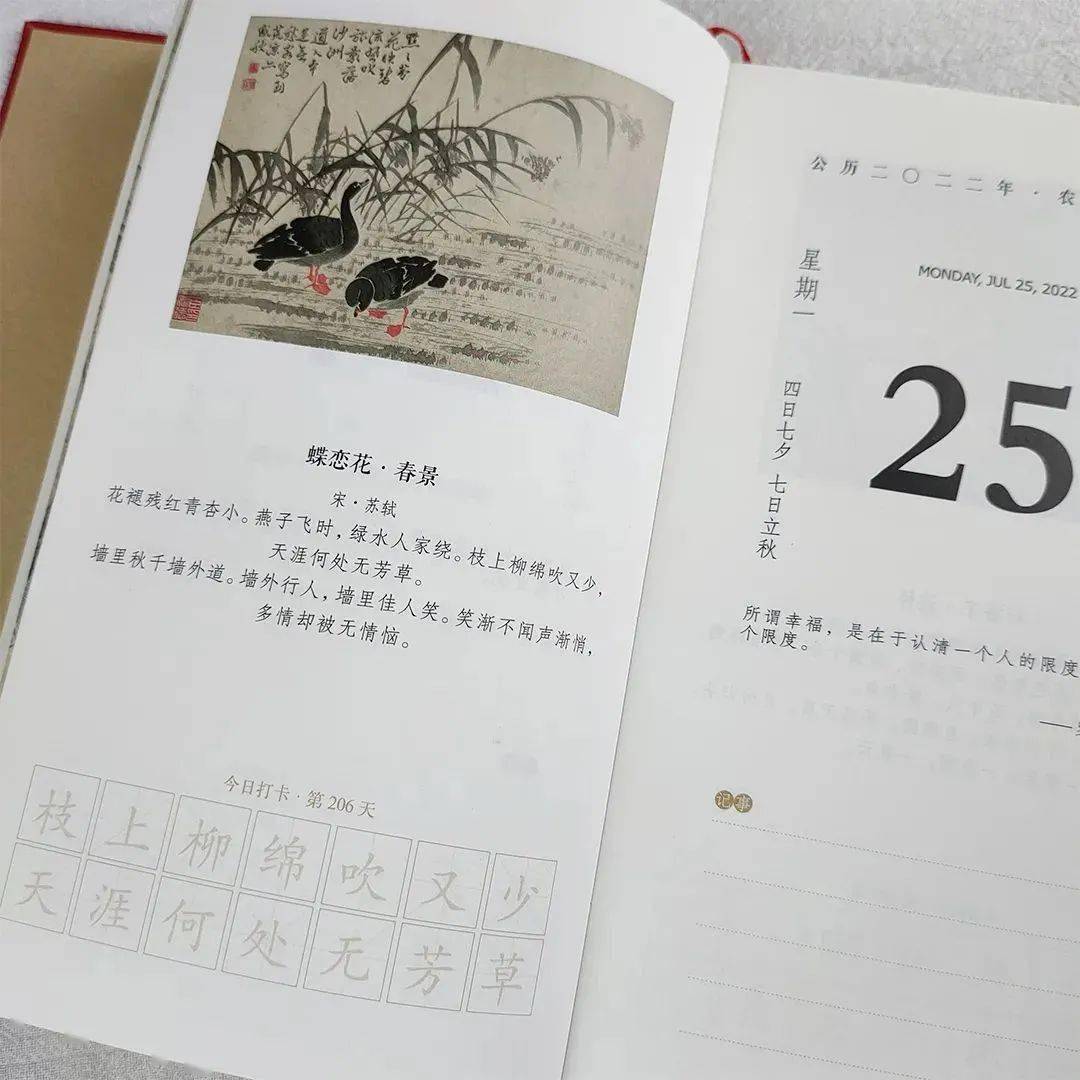 蝶恋花·春景
宋·苏轼
花褪残红青杏小。燕子飞时，绿水人家绕。枝上柳绵吹又少，
天涯何处无芳草。
墙里秋千墙外道。墙外行人，墙里佳人笑。笑渐不闻声渐悄，
多情却被无情恼。
今日打卡·第 206 天
枝上柳绵吹又少
天涯何处无芳草
公历二〇二二年·农
星期一
MONDAY, JUL 25, 2022
25
四日七夕 七日立秋
所谓幸福，是在于认清一个人的限度
个限度。
记事